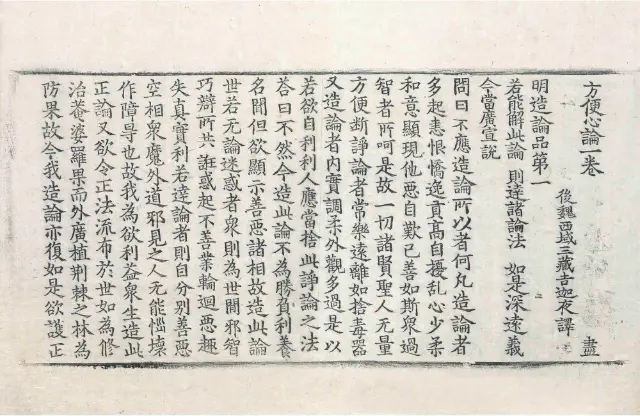 方便心論一卷 盡
後魏西域三藏吉迦夜譯
明造論品第一
若能解此論 則達諸論法 如是深遠義
今當廣宣說
問曰不應造論所以者何凡造論者
多起恚恨憍逸貢高自擾亂心少柔
和意顯現他惡自歎己善如斯衆過
智者所呵是故一切諸賢聖人無量
方便斷諍論者常樂遠離如捨毒器
又造論者內實調柔外觀多過是以
若欲自利利人應當捨此諍論之法
荅曰不然今造此論不為勝負利養
名聞但欲顯示善惡諸相故造此論
世若無論迷惑者衆則為世間邪智
巧辯所共誑惑起不善業輪迴惡趣
失真實利若達論者則自分別善惡
空相衆魔外道邪見之人無能惱壞
作障㝵也故我為欲利益衆生造此
正論又欲令正法流布於世如為修
治菴婆羅果而外廣植荆棘之林為
防果故今我造論亦復如是欲護正